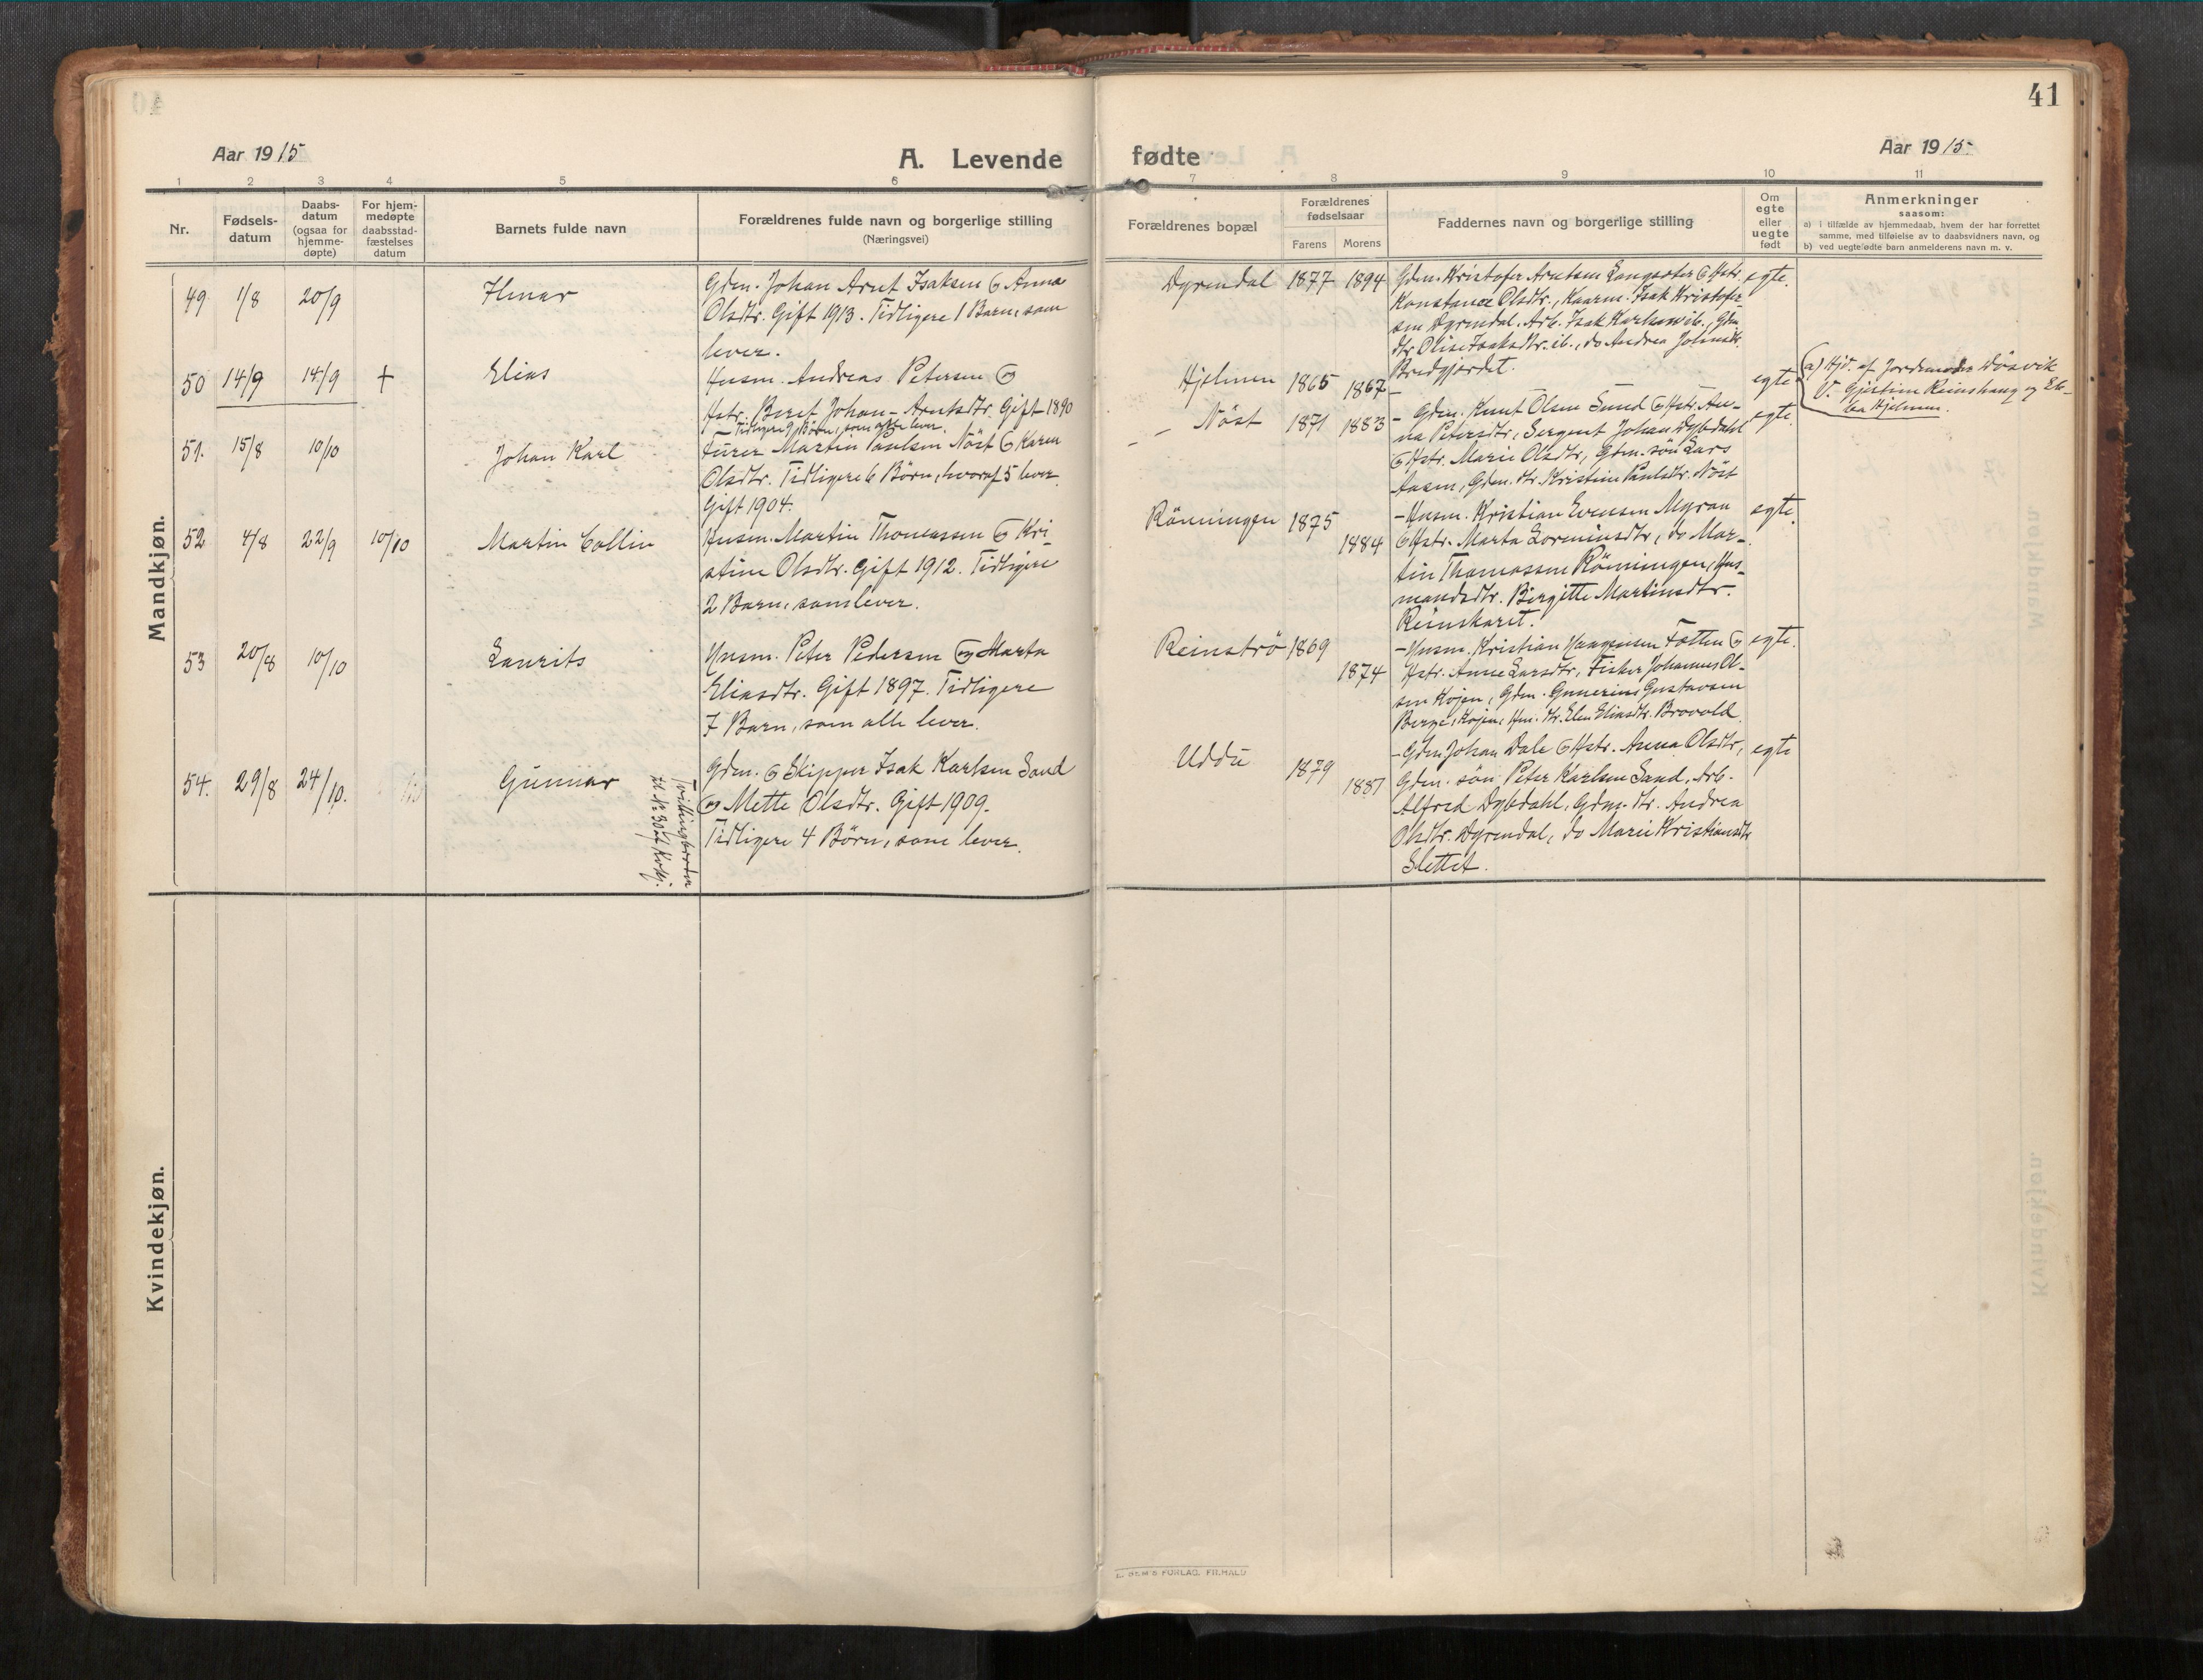 41
Aar 1915
A. Levende fødte
Aar 1915
1 2 3 4 5 6 7 8 9 10 11
Nr.
Fødsels-
datum
Daabs-
datum
(ogsaa for
hjemme-
døpte)
For hjem-
medøpte
daabsstad-
fæstelses
datum
Barnets fulde navn
Forældrenes fulde navn og borgerlige stilling
(Næringsvei)
Forældrenes bopæl
Forældrenes
fødselsaar
Farens Morens
Faddernes navn og borgerlige stilling
Om
egte
eller
uegte
født
Anmerkninger
saasom:
a) i tilfælde av hjemmedaab, hvem der har forrettet
samme, med tilføielse av to daabsvidners navn, og
b) ved uegtefødte barn anmelderens navn m. v.
Mandkjøn.
49. 1/8 20/9 Ilmar
Gdm. Johan Arnt Isaksen & Anna
Olsdtr. Gift 1913. Tidligere 1 Barn, som
lever.
Dyrendal 1877 1894
Gdm. Kristofer Arntsen Langsæter & Hstr.
Konstance Olsdtr., Kaarm. Isak Kristofer-
sen Dyrendal. Arb. Isak Karlsen ib., Gdm
dtr. Olise Isaksdtr. ib., do Andrea Johnsdtr.
Bredgjerdet.
egte.
50 14/9 14/9 † Elias
Husm. Andreas Petersen &
Hstr. Beret Johan-Arntsdtr. Gift 1890
Tidligere 9 Børn, som alle lever.
Hjelmen 1865 1867 –
egte
a) Hjd. af Jordemoder Døsvik
V. Gjertine Reinshaug og El-
len Hjelmen.
51. 15/8 10/10 Johan Karl
Furer Martin Paulsen Nöst & Karen
Olsdtr. Tidligere 6 Börn, hvoraf 5 lever.
Gift 1904.
– – Nöst 1871 1883
– Gdm. Knut Olsen Sund & Hstr. An-
na Petersdtr., Sergent Johan Dybdahl
& Hstr. Marie Olsdtr., Gdm. søn Lars
Aasen, Gdm. dtr. Kristine Paulsdtr. Nöst
egte.
52 4/8 22/9 10/10 Martin Collin
Husm. Martin Thomassen & Kri-
stine Olsdtr. Gift 1912. Tidligere
2 Barn, som lever.
Rönningen 1875 1884
– Husm. Kristian Evensen Myran
& Hstr. Marta Lorninsdtr., do Mar-
tin Thomassen Rönningen, Hus-
mandsdtr. Birgitte Martinsdtr.
Reinskaret.
egte.
53 20/8 10/10 Laurits
Husm. Peter Pedersen og Marta
Eliasdtr. Gift 1897. Tidligere
7 Barn, som alle lever.
Reinströ 1869 1874
– Husm. Kristian Haagensen Fætten &
Hstr. Anne Larsdtr., Fisker Johannes Ol-
sen Kojen, Gdm. Gunerius Gustavsen
Berge, Kojen, Hm. dtr. Elen Eliasdtr. Brovold.
egte.
54. 29/8 24/10. Gunnar
Tvillingbroder
til № 30 af Kvkj.
Gdm. & Skipper Isak Karlsen Sand
og Mette Olsdtr. Gift 1909.
Tidligere 4 Börn, som lever.
Uddu 1879 1887
– Gdm. Johan Dale & Hstr. Anna Olsdtr.,
Gdm. sön Peter Karlsen Sand, Arb.
Alfred Dybdahl, Gdm. dtr. Andrea
Olsdtr. Dyrendal, do Marie Kristiansdtr
Slettet.
egte
Kvindekjøn.